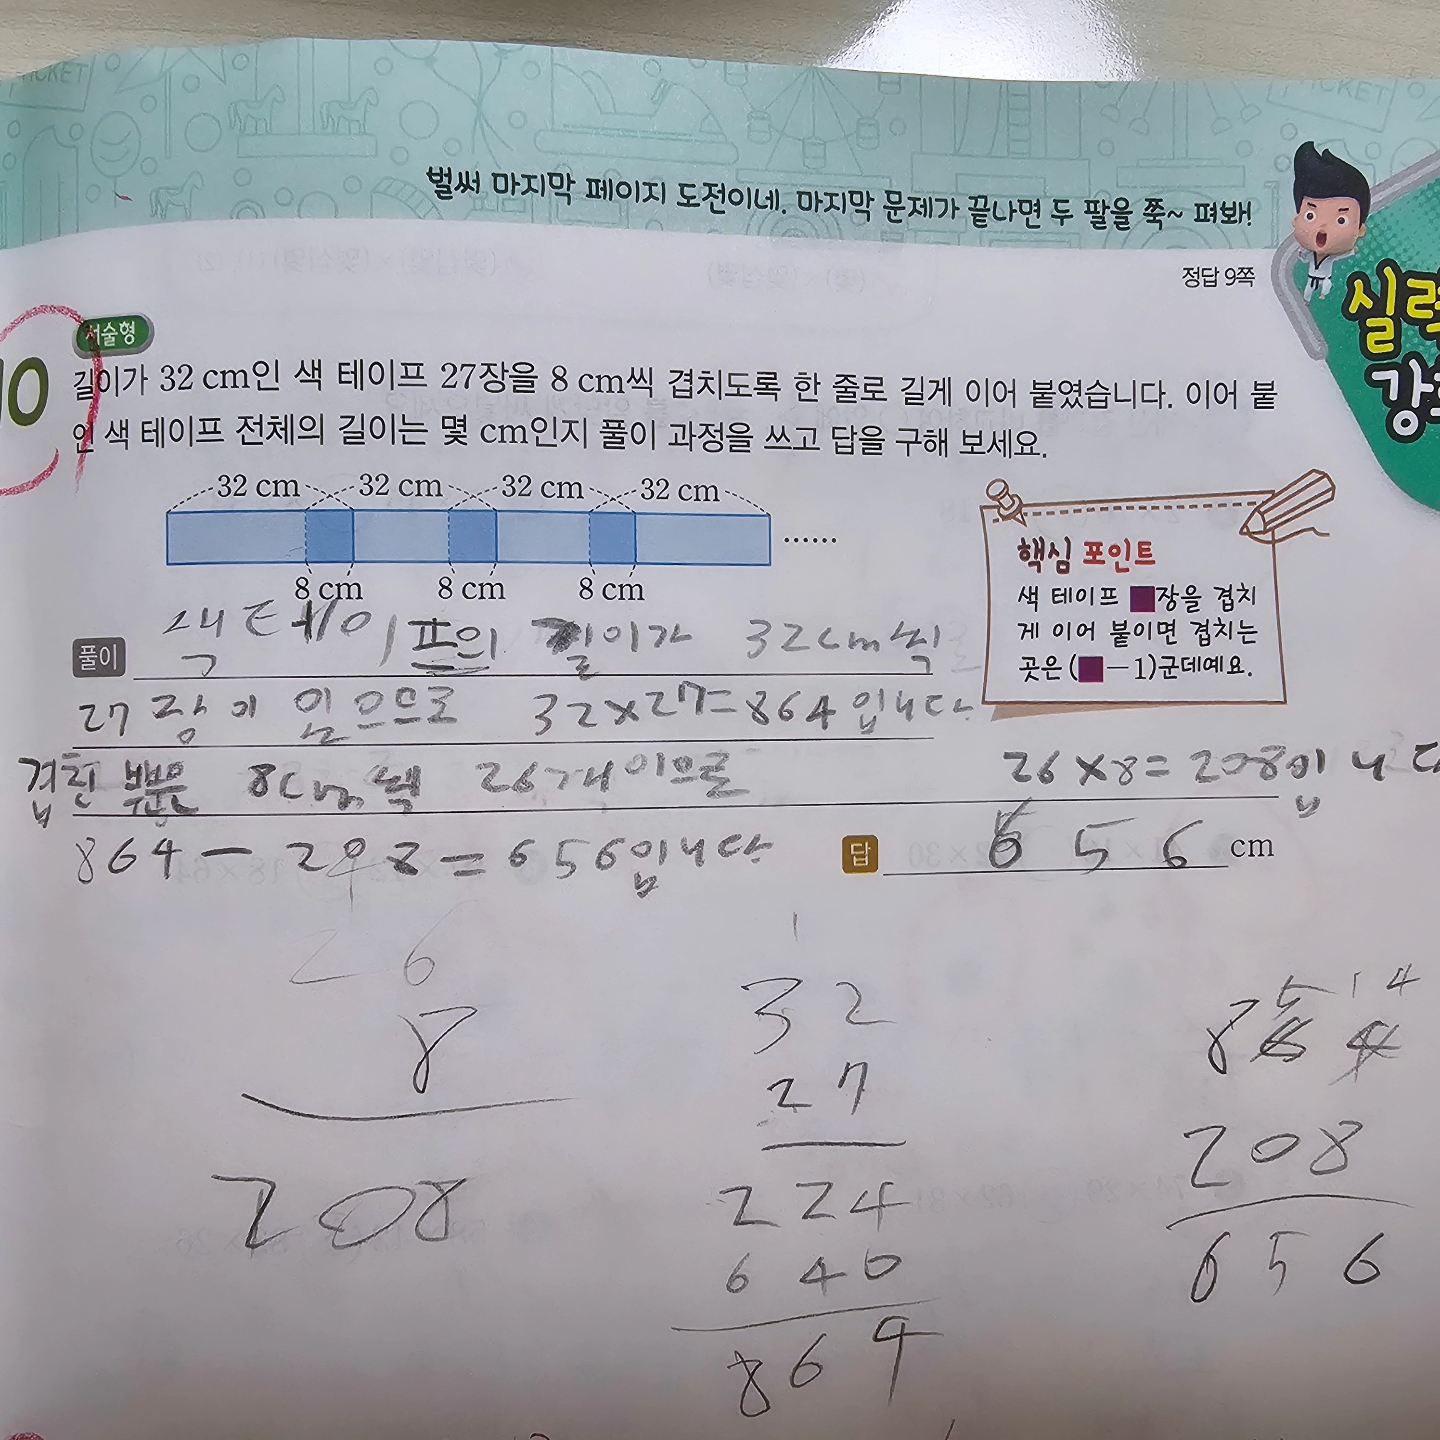 벌써 마지막 페이지 도전이네. 마지막 문제가 끝나면 두 팔을 쭉~ 펴봐!
정답 9쪽
실력
10
서술형
길이가 32 cm인 색 테이프 27장을 8 cm씩 겹치도록 한 줄로 길게 이어 붙였습니다. 이어 붙
인 색 테이프 전체의 길이는 몇 cm인지 풀이 과정을 쓰고 답을 구해 보세요.
32 cm 32 cm 32 cm 32 cm
......
8 cm 8 cm 8 cm
핵심 포인트
색 테이프 ■장을 겹치
게 이어 붙이면 겹치는
곳은 (■-1)군데예요.
풀이 색 테이프의 길이가 32cm씩
27장이 있으므로 32×27=864입니다
겹친 부분은 8cm씩 26개이므로 26×8=208입니다
864-208=656입니다
답 656 cm
26
8
208
1
32
27
224
640
864
5 14
864
208
656